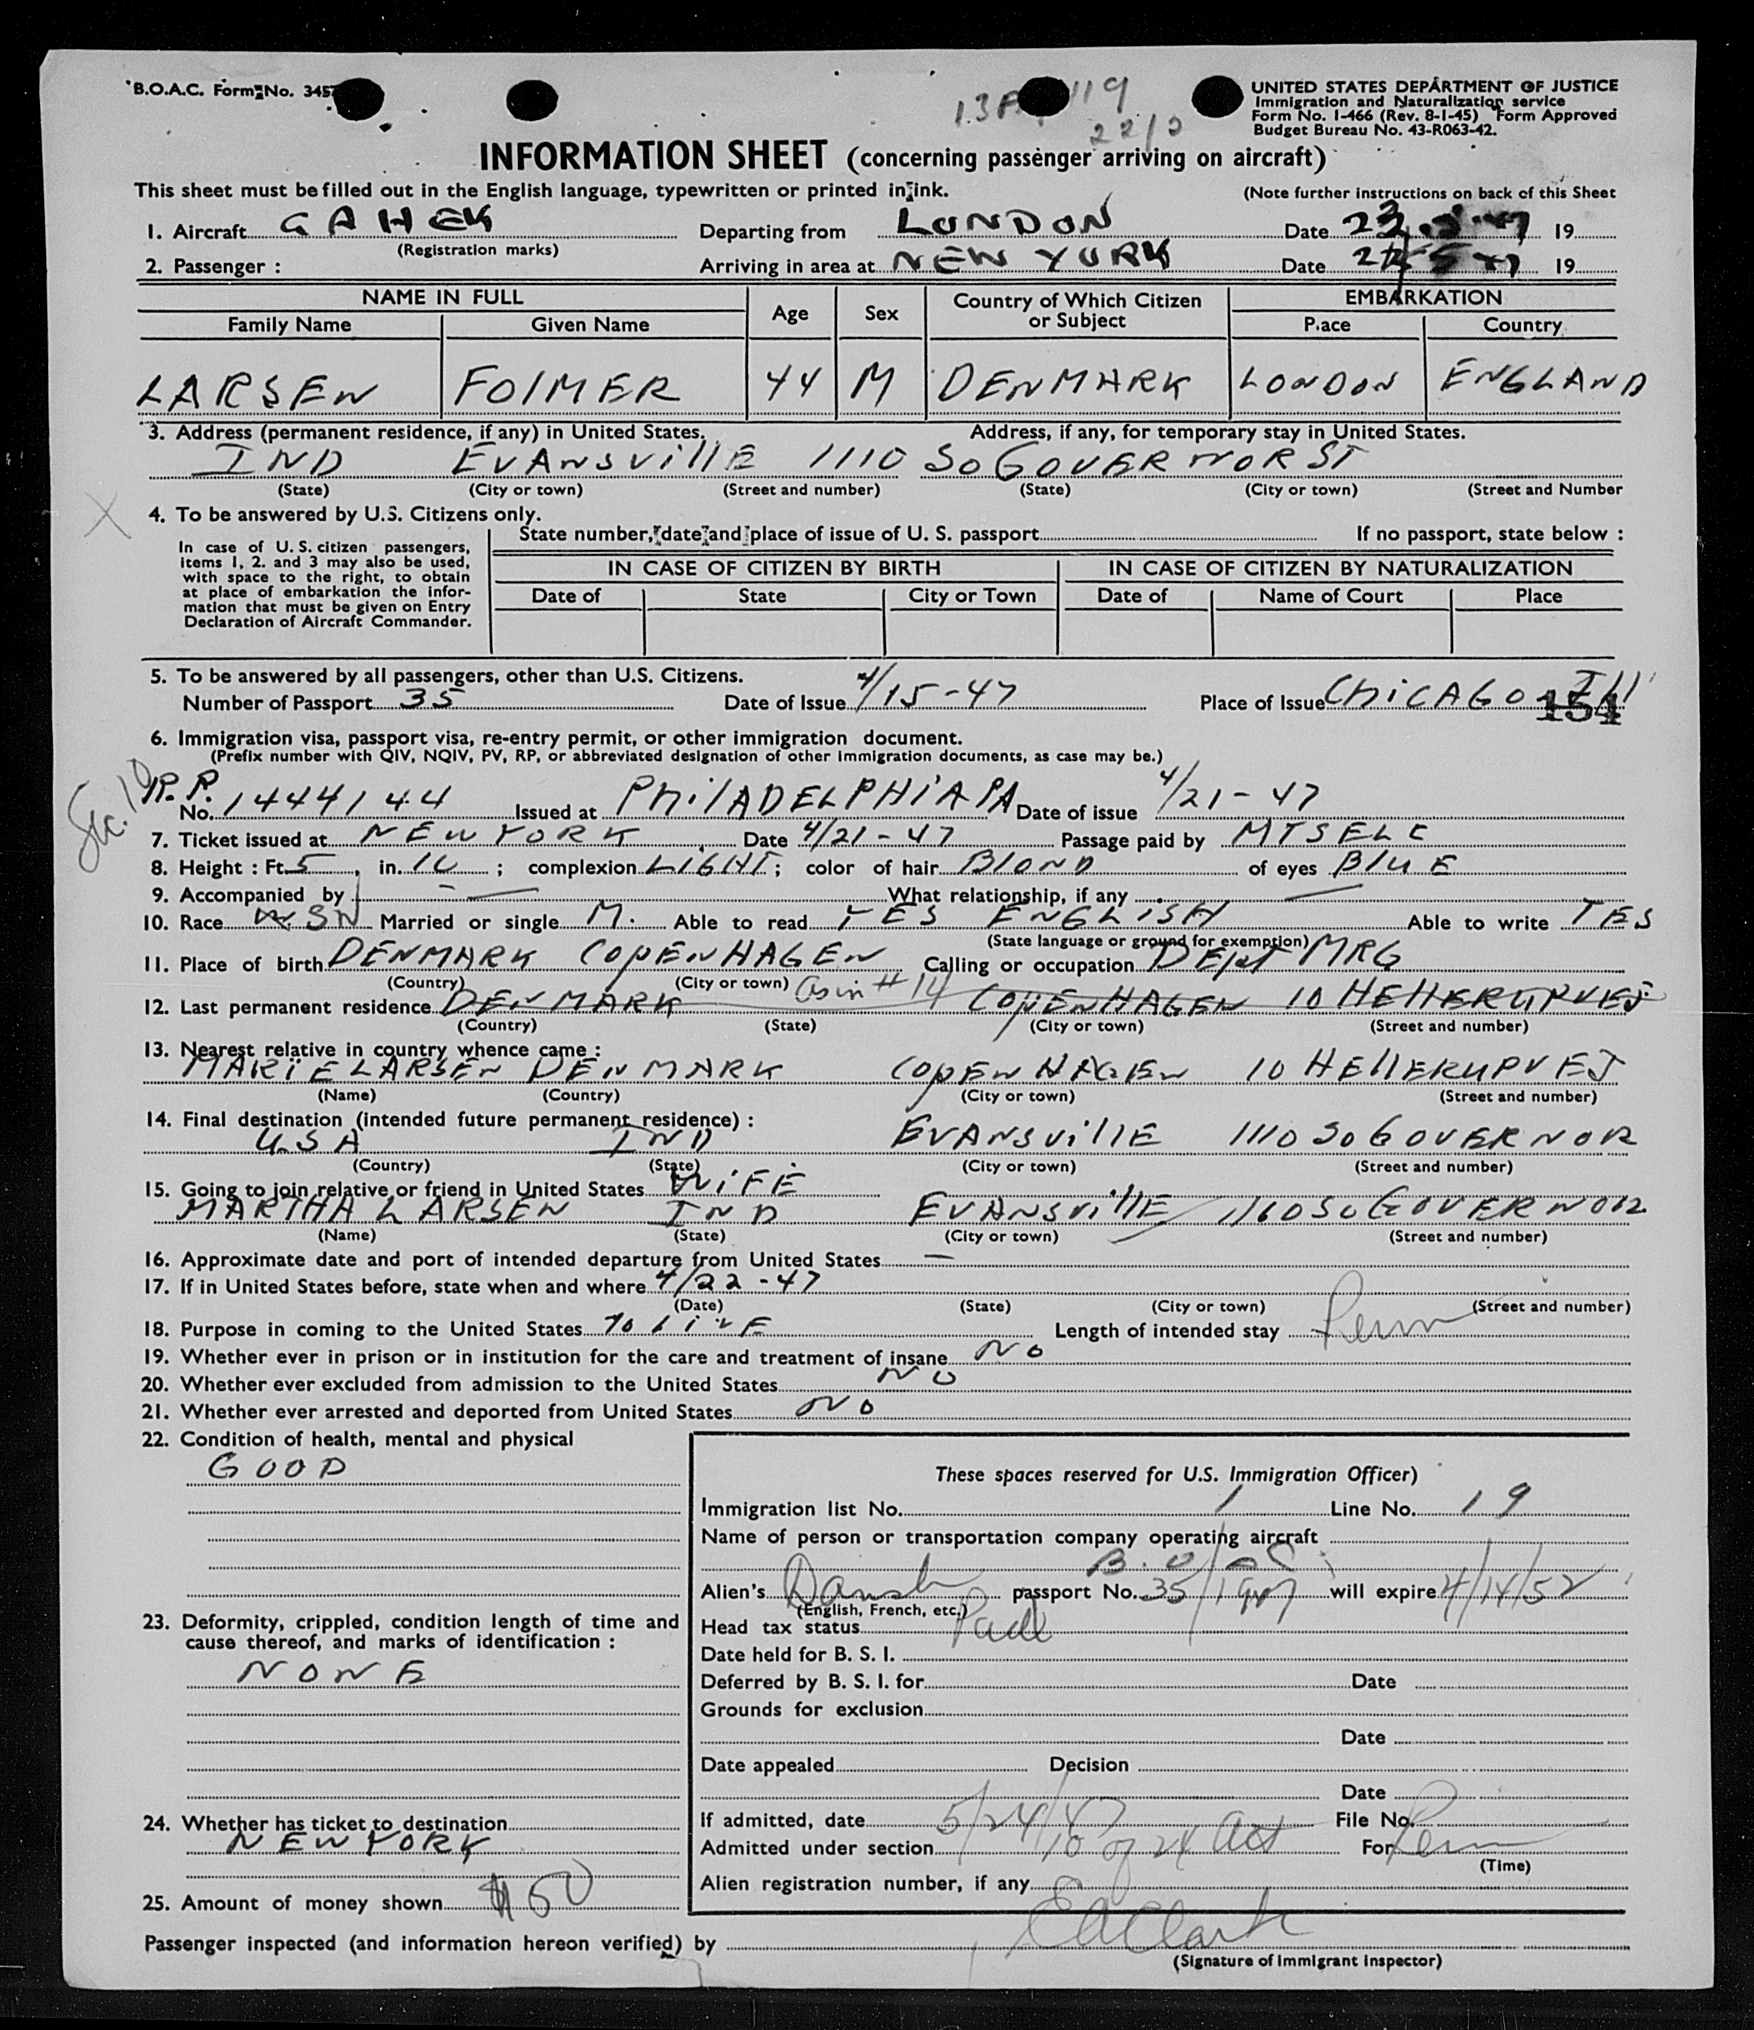 B.O.A.C. Form No. 345
UNITED STATES DEPARTMENT OF JUSTICE
Immigration and Naturalization service
Form No. I-466 (Rev. 8-1-45) Form Approved
Budget Bureau No. 43-R063-42.
119
INFORMATION SHEET (concerning passenger arriving on aircraft)
This sheet must be filled out in the English language, typewritten or printed in ink. (Note further instructions on back of this Sheet
1. Aircraft GAHEK Departing from LONDON Date 19
(Registration marks)
2. Passenger : Arriving in area at NEW YORK Date 19
NAME IN FULL Age Sex Country of Which Citizen or Subject EMBARKATION
Family Name Given Name Place Country
LARSEN FOlMER 44 M DENMARK LONDON ENGLAND
3. Address (permanent residence, if any) in United States. Address, if any, for temporary stay in United States.
IND EVANSVillE 1110 SO GOVERNOR ST
(State) (City or town) (Street and number) (State) (City or town) (Street and Number
4. To be answered by U.S. Citizens only.
State number, date and place of issue of U. S. passport If no passport, state below :
In case of U. S. citizen passengers,
items 1, 2. and 3 may also be used,
with space to the right, to obtain
at place of embarkation the infor-
mation that must be given on Entry
Declaration of Aircraft Commander.
IN CASE OF CITIZEN BY BIRTH IN CASE OF CITIZEN BY NATURALIZATION
Date of State City or Town Date of Name of Court Place
5. To be answered by all passengers, other than U.S. Citizens.
Number of Passport 35 Date of Issue 4/15-47 Place of Issue CHiCAGO Ill
154
6. Immigration visa, passport visa, re-entry permit, or other immigration document.
(Prefix number with QIV, NQIV, PV, RP, or abbreviated designation of other immigration documents, as case may be.)
R.P.
No. 1444144 Issued at PHilADELPHiA PA Date of issue 4/21-47
7. Ticket issued at NEW YORK Date 4/21-47 Passage paid by MYSELF
8. Height : Ft. 5 , in. 10 ; complexion LIGHT ; color of hair BlOND of eyes BluE
9. Accompanied by — What relationship, if any —
10. Race SN Married or single M. Able to read YES ENGLISH Able to write YES
(State language or ground for exemption)
11. Place of birth DENMARK COPENHAGEN Calling or occupation DEpt MRG
(Country) (City or town)
as in #14
12. Last permanent residence DENMARK COPENHAGEN 10 HEllERUPVEJ
(Country) (State) (City or town) (Street and number)
13. Nearest relative in country whence came :
MARIE LARSEN DENMARK COPENHAGEN 10 HEllERUPVEJ
(Name) (Country) (City or town) (Street and number)
14. Final destination (intended future permanent residence) :
USA IND EVANSVillE 1110 SO GOVERNOR
(Country) (State) (City or town) (Street and number)
15. Going to join relative or friend in United States WiFE
MARTHA LARSEN IND EVANSVillE 1110 SO GOVERNOR
(Name) (State) (City or town) (Street and number)
16. Approximate date and port of intended departure from United States —
17. If in United States before, state when and where 4/22-47
(Date) (State) (City or town) (Street and number)
18. Purpose in coming to the United States To LiVE Length of intended stay Perm
19. Whether ever in prison or in institution for the care and treatment of insane No
20. Whether ever excluded from admission to the United States No
21. Whether ever arrested and deported from United States No
22. Condition of health, mental and physical
GOOD
These spaces reserved for U.S. Immigration Officer)
Immigration list No. 1 Line No. 19
Name of person or transportation company operating aircraft
B.O.A.C.
Alien's Danish passport No. 35/1947 will expire 4/14/52
(English, French, etc.)
Head tax status Paid
Date held for B. S. I.
Deferred by B. S. I. for Date
Grounds for exclusion
Date
Date appealed Decision
Date
If admitted, date 5/24/47 File No.
Admitted under section 10 of 24 Act For Perm
(Time)
Alien registration number, if any
23. Deformity, crippled, condition length of time and
cause thereof, and marks of identification :
NONE
24. Whether has ticket to destination
NEW YORK
25. Amount of money shown $50
Passenger inspected (and information hereon verified) by EA Clark
(Signature of Immigrant Inspector)